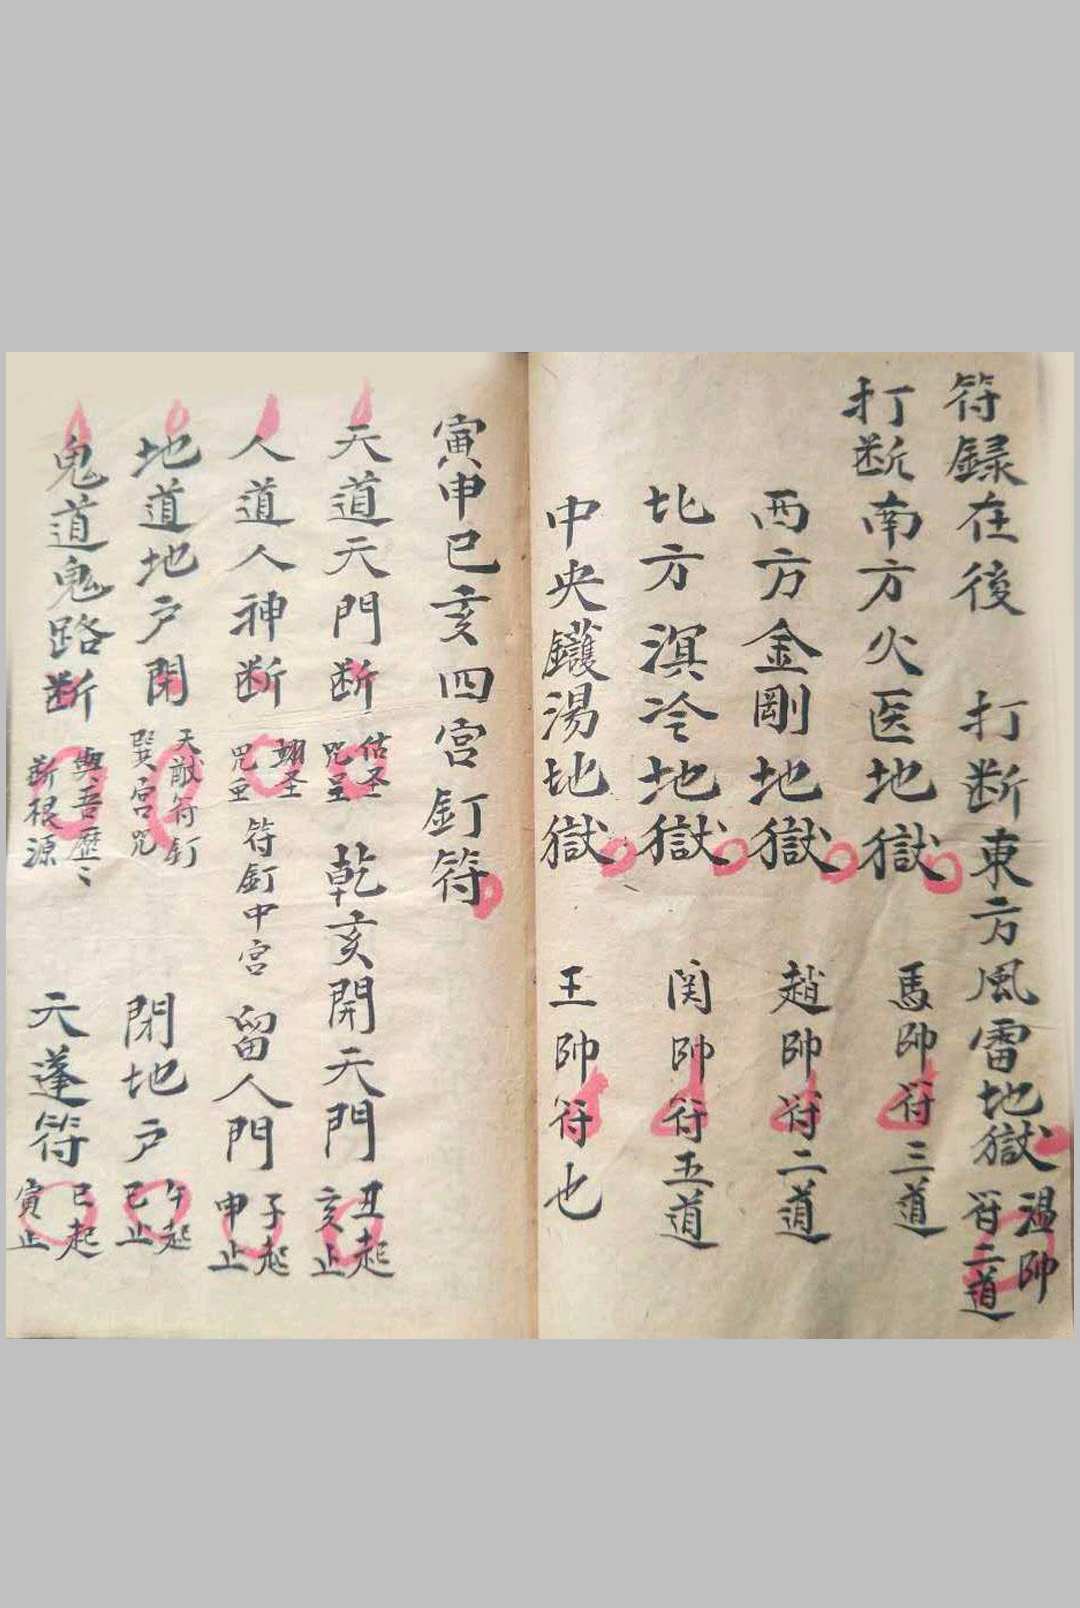 符録在後　打断東方風雷地獄　温帥符二道
打断南方火医地獄　馬帥符三道
西方金剛地獄　趙帥符二道
北方溟冷地獄　関帥符五道
中央鑊湯地獄　王帥符也
寅申巳亥四宮釘符
天道天門断　佑圣咒圣　乾亥開天門　丑起亥止
人道人神断　翊圣咒重　符釘中宮　留人門　子起申止
地道地户閉　天猷符釘巽宮咒　閉地户　午起巳止
鬼道鬼路断　與吾歷〻断根源　天蓬符　巳起寅止